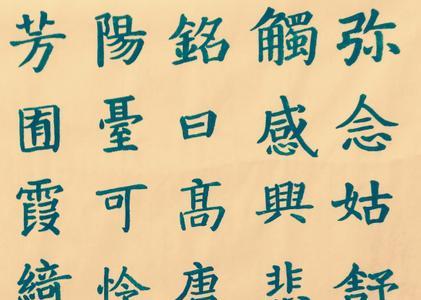 弥念姑舒
觸感興悲
銘曰髙唐
陽臺可怜
芳囿霞綺